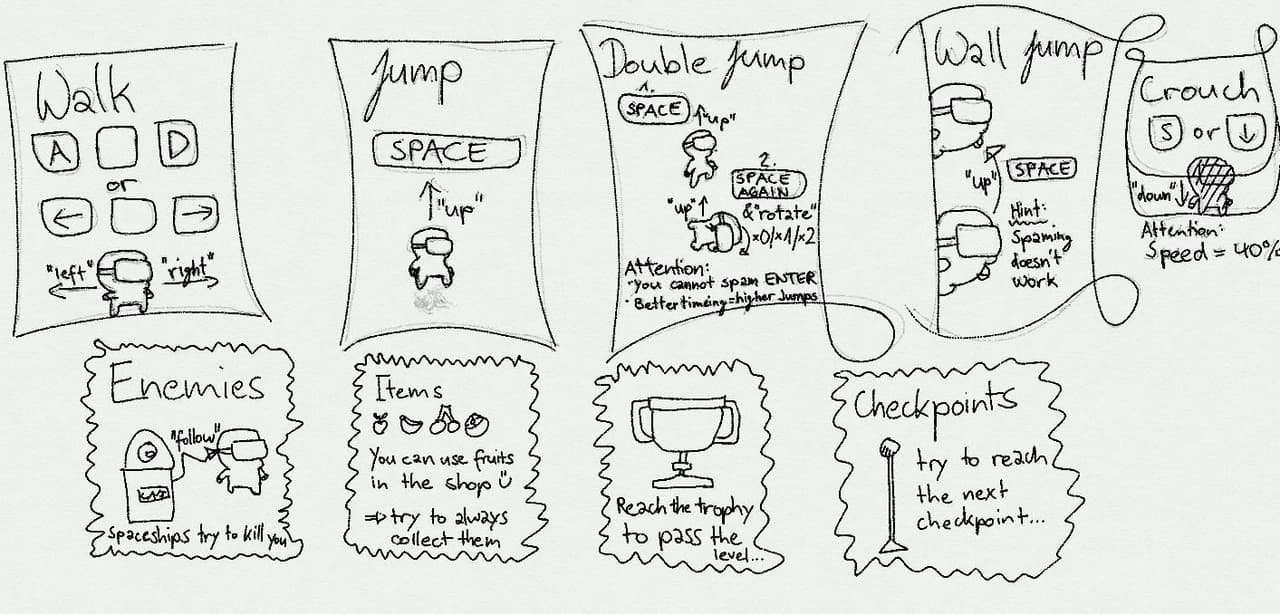 Walk
A
D
or
← →
"left" "right"
Jump
SPACE
"up"
Double Jump
1.
SPACE
"up"
2.
SPACE
AGAIN
"up"
& "rotate"
×0/×1/×2
Attention:
• You cannot spam ENTER
• Better timeing = higher Jumps
Wall Jump
SPACE
"up"
Hint:
Spaming
doesn't
work
Crouch
S or ↓
"down"
Attention:
Speed = 40%
Enemies
"follow"
Spaceships try to kill you
Items
You can use fruits
in the shop
⇒ try to always
collect them
Reach the trophy
to pass the
level...
Checkpoints
try to reach
the next
checkpoint...